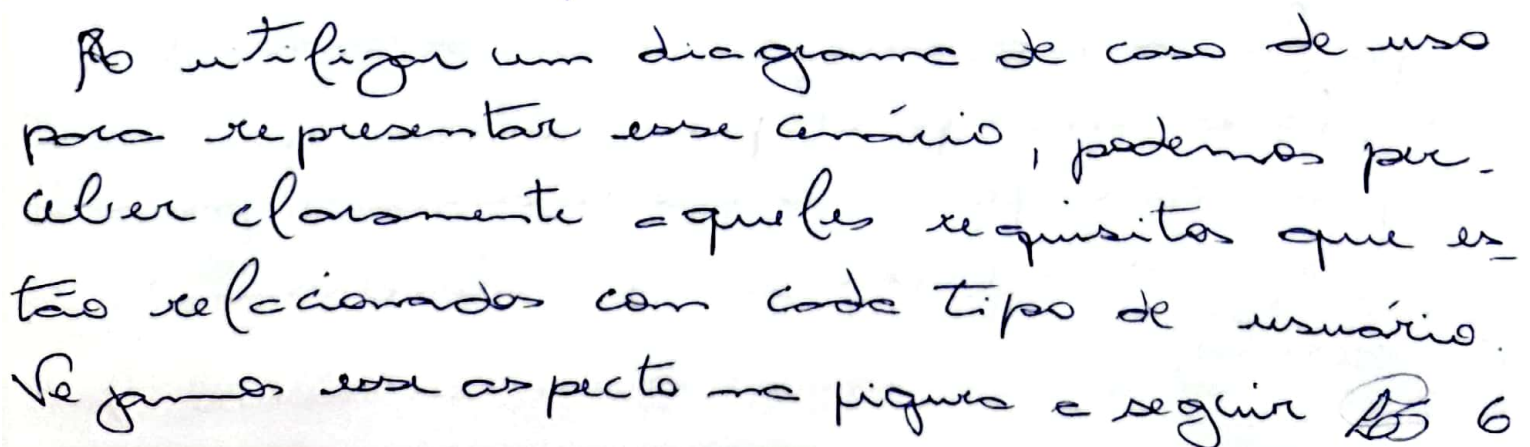 Ao utilizar um diagrama de caso de uso
para representar esse cenário, podemos per-
ceber claramente aqueles requisitos que es-
tão relacionados com cada tipo de usuário.
Vejamos esse aspecto na figura a seguir 6